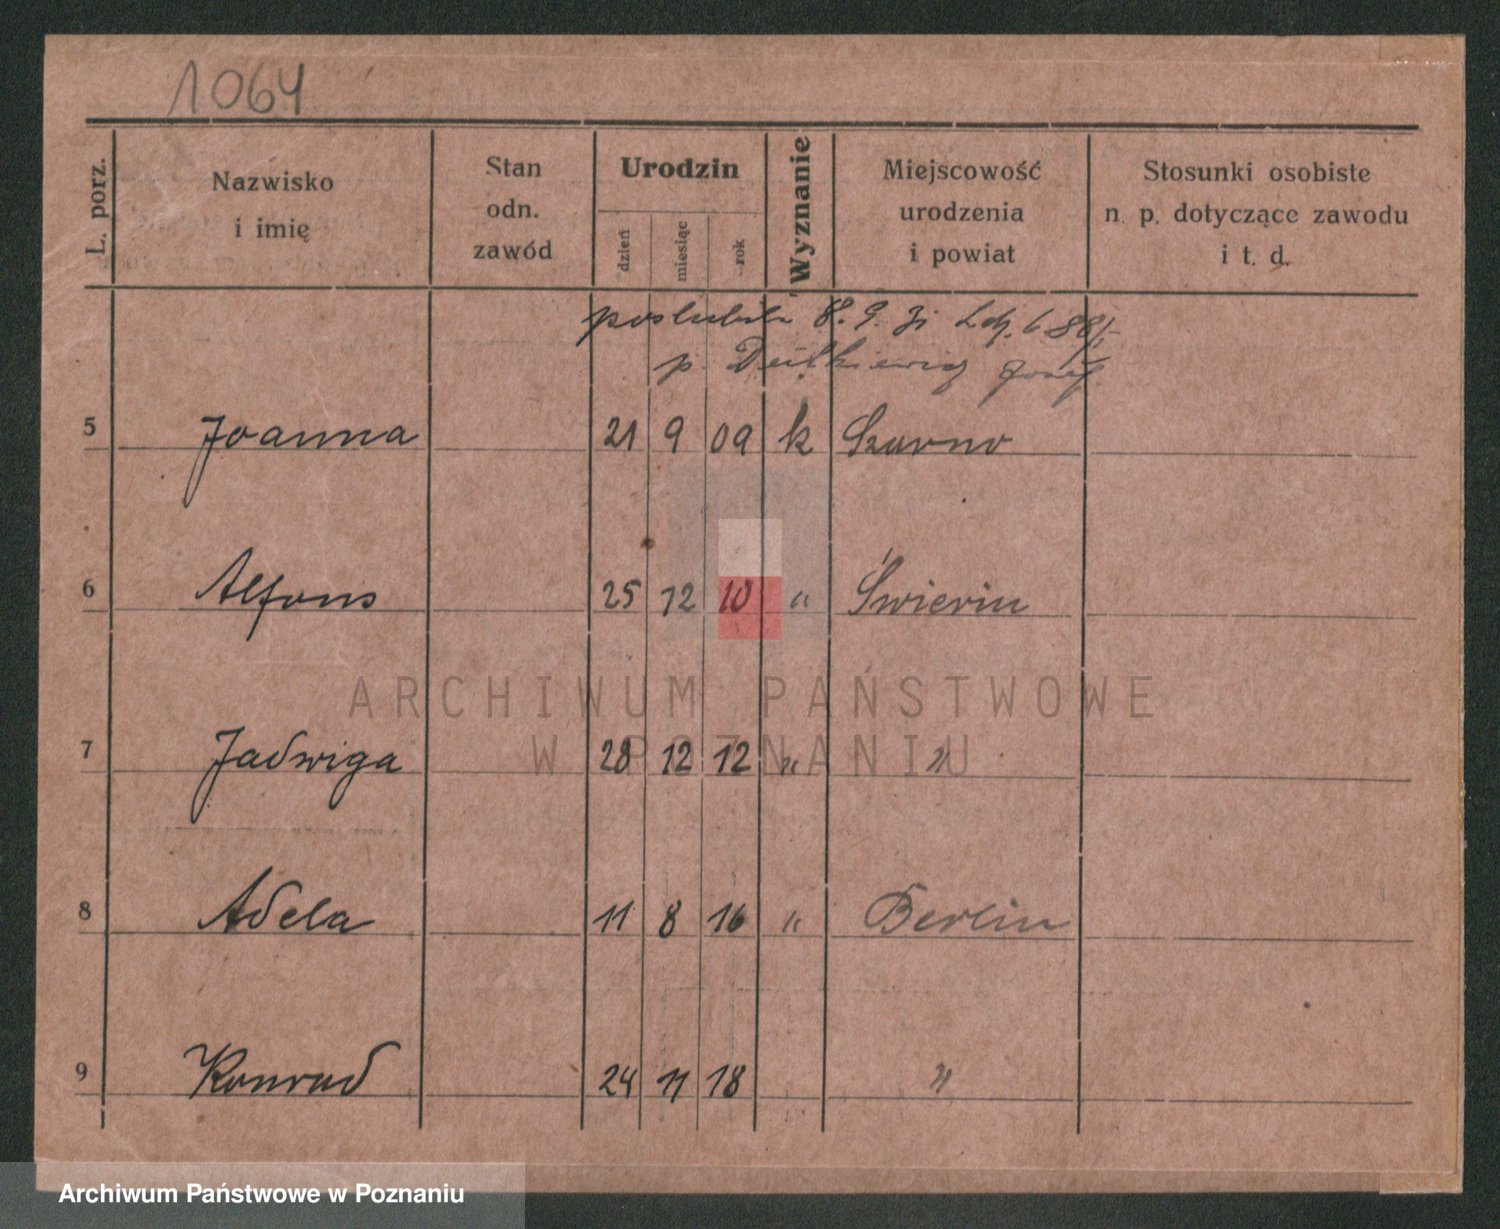 1064
L. porz.
Nazwisko
i imię
Stan
odn.
zawód
Urodzin
dzień
miesiąc
rok
Wyznanie
Miejscowość
urodzenia
i powiat
Stosunki osobiste
n. p. dotyczące zawodu
i t. d.
poslubiła 8. 9. 31 Ldz. 6881/-
p. Józef
5 Joanna 21 9 09 k
6 Alfons 25 12 10 " Świerin
7 Jadwiga 28 12 12 " "
8 Adela 11 8 16 " Berlin
9 Konrad 24 11 18 "
ARCHIWUM PAŃSTWOWE
W POZNANIU
Archiwum Państwowe w Poznaniu